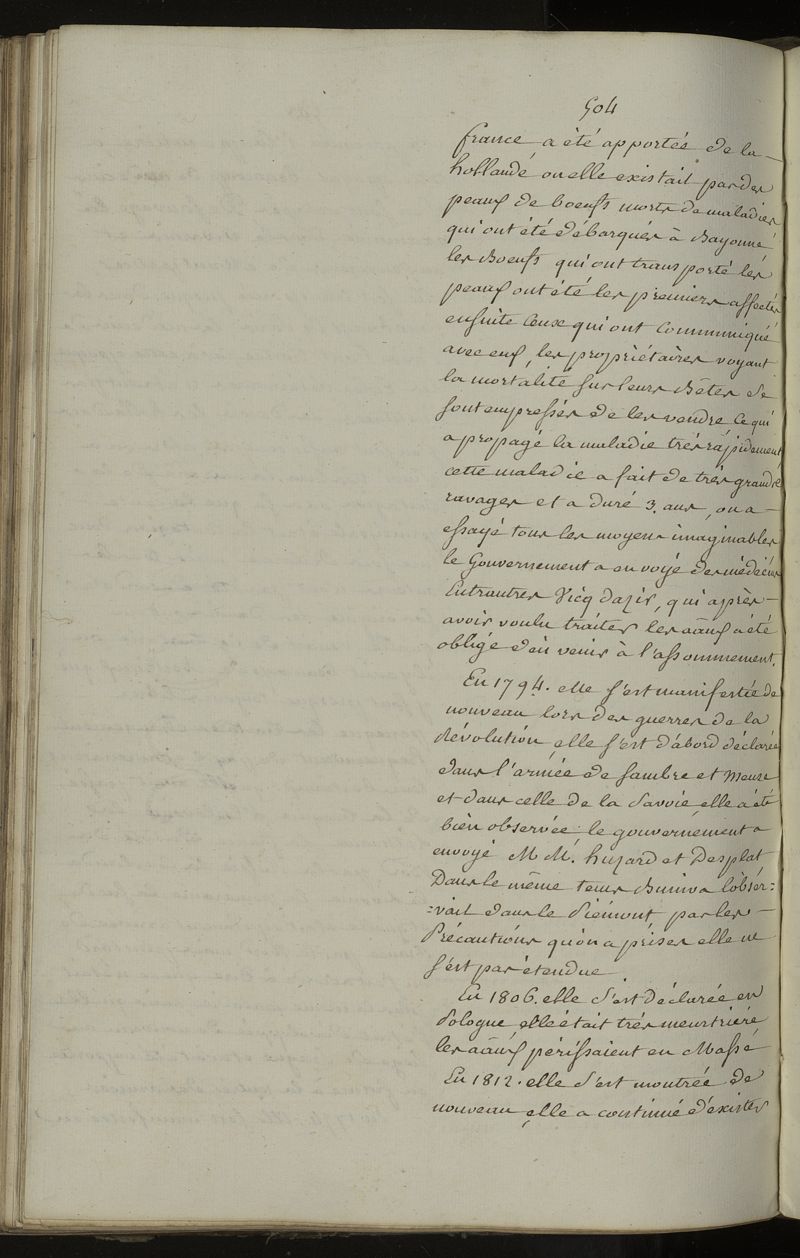 504
france a été apportée de la —
hollande, ou elle existait par des
peaux de boeufs morts de maladies
qui ont été débarqués à Bayonne
les Boeufs qui ont transporté les
peaux ont été les premiers affectés
ensuite Ceux qui ont Communiqué
avec eux, les propriétaires voyant
la mortalité sur leurs Bêtes se
sont empressés de les vendre Ce qui
a propagé la maladie très rapidement
cette maladie a fait de très grands
ravages et a duré 3. ans, on a —
essayé tous les moyens imaginables
le Gouvernement a envoyé des médecins
Entr'autres Vicq dazir, qui après —
avoir voulu traiter les aâux a été
obligé d'en venir à l'assommement.
En 1794. elle s'est manifestée de
nouveau lors des guerres de la
Révolution, elle s'est d'abord déclarée
dans l'armée de Sambre et Meuse
et dans celle de la Savoie, elle a été
bien observée: le gouvernement a
envoyé M M. huzard et Desplat
Dans le même tems Buniva l'obser=
=vait dans le Piémont par les —
Précautions qu'on a prises elle ne
s'est pas étendue.
En 1806. elle s'est déclarée en
Pologne, elle était très meurtrière
les aâux périssaient en Masse
En 1812. elle s'est montrée de
nouveau, elle a continué d'exister